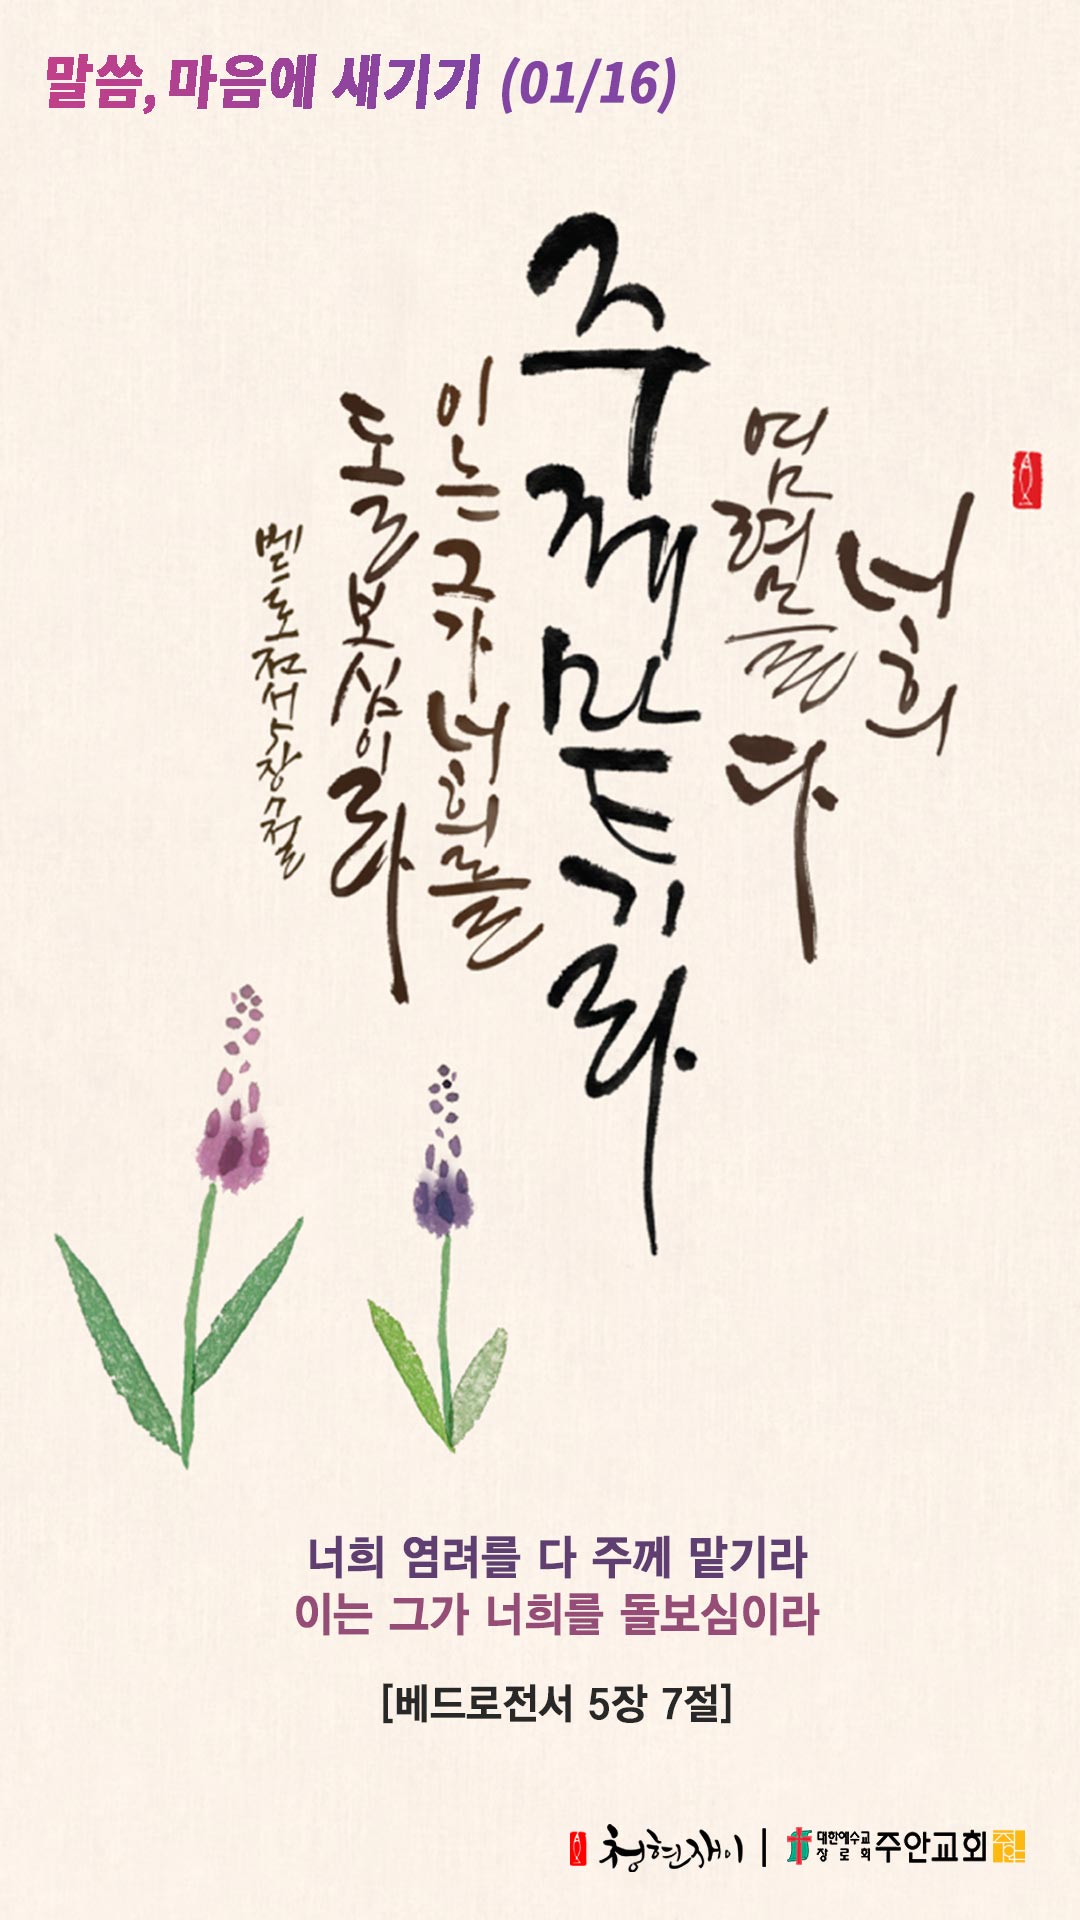 말씀, 마음에 새기기 (01/16)
너희
염려를 다
주께 맡기라
이는 그가 너희를
돌보심이라
베드로전서 5장 7절
너희 염려를 다 주께 맡기라
이는 그가 너희를 돌보심이라
[베드로전서 5장 7절]
청현재이 | 대한예수교
장로회 주안교회